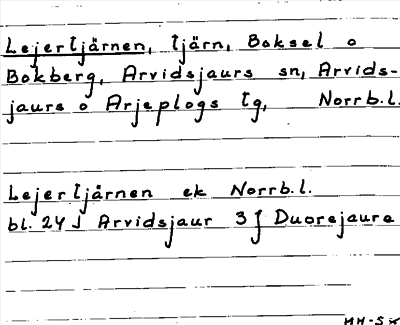 Lejertjärnen, tjärn, Boksel o
Bokberg, Arvidsjaurs sn, Arvids-
jaurs o Arjeplogs tg, Norrb.l.
Lejertjärnen ek Norrb.l.
bl. 24J Arvidsjaur 3f Duorejaure